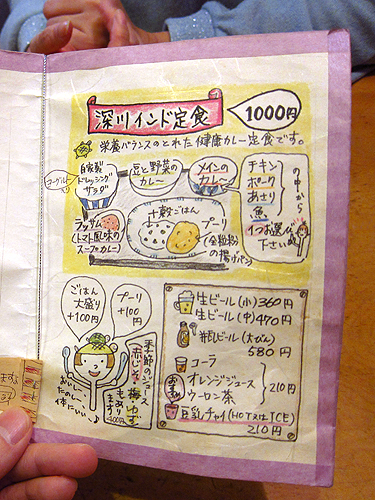 深川インド定食
1000円
栄養バランスのとれた健康カレー定食です。
ヨーグルト
自家製
ドレッシング
サラダ
豆と野菜の
カレー
メインの
カレー
チキン
ポーク
あさり
魚
の中から
1つお選び
下さい
ラッサム
(トマト風味の
スープカレー)
十穀ごはん
プーリ
(全粒粉
の揚げパン)
ごはん
大盛り
+100円
プーリ
+100
円
おいしく
たのしく
体にいい♪
季節のジュース
赤じそ・梅・ゆず
もあり
ます
生ビール(小)360円
生ビール(中)470円
瓶ビール(大びん)
580円
コーラ
オレンジジュース
ウーロン茶
210円
豆乳チャイ(HOT又はICE)
210円